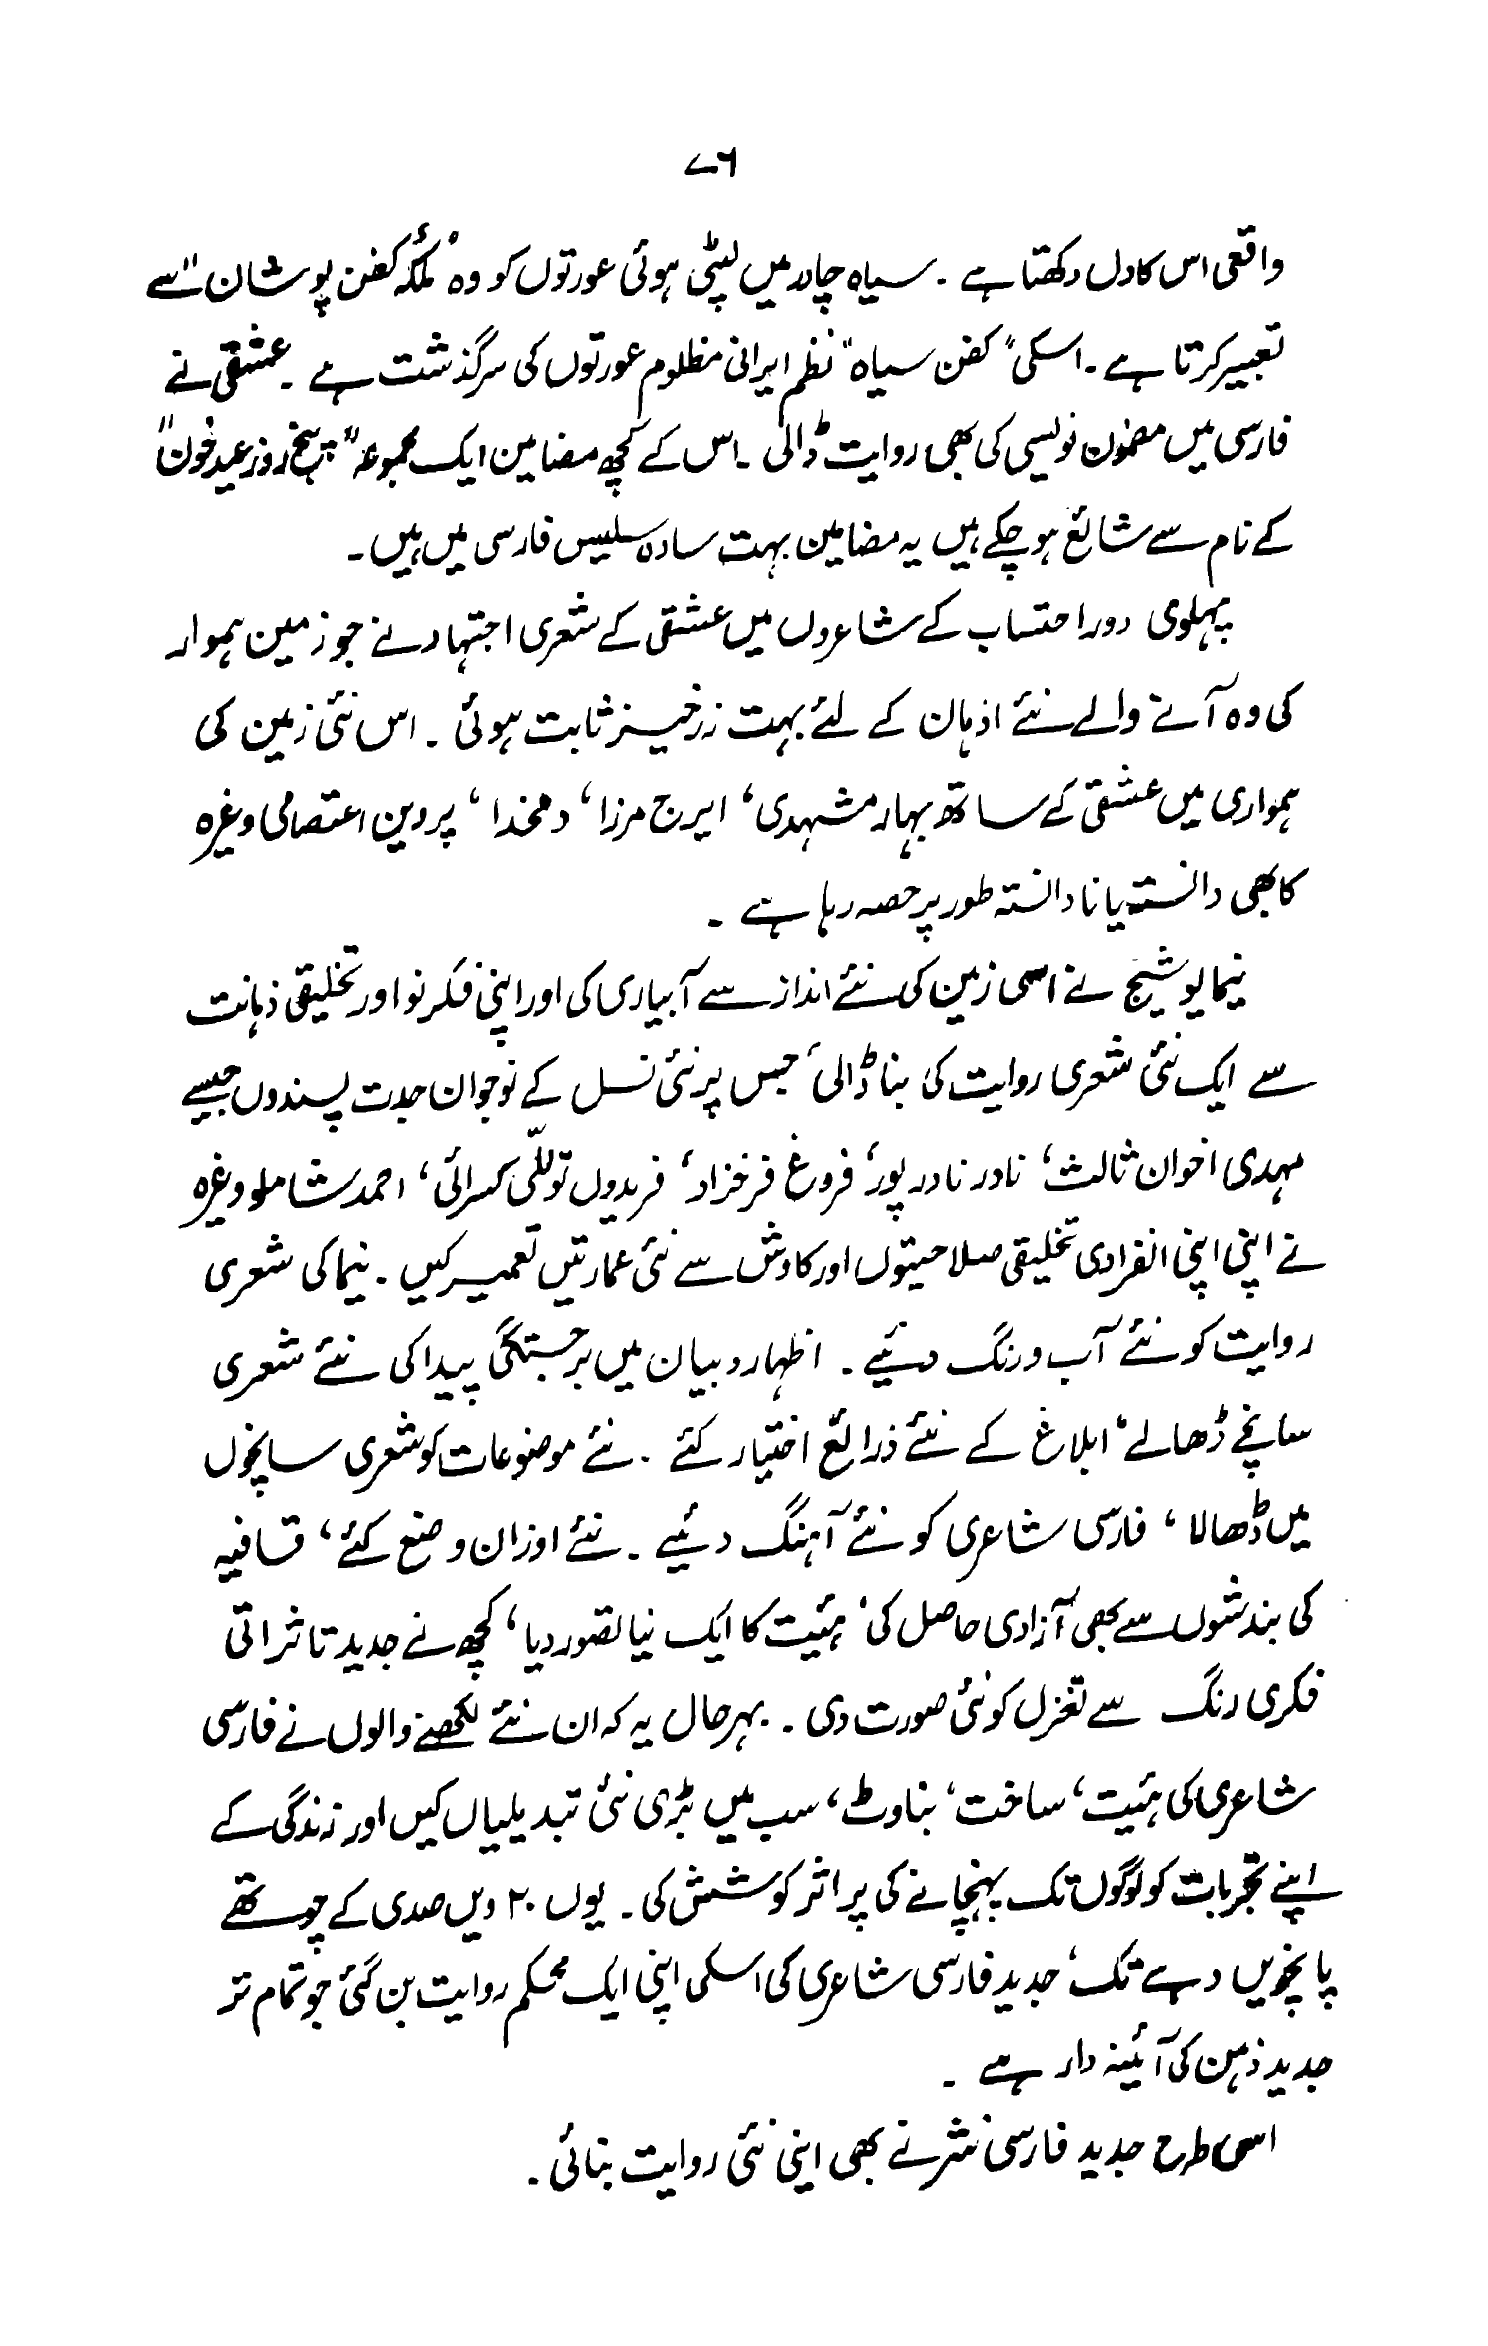 ۷۶
واقعی اس کا دل دکھتا ہے ۔ سیاہ چادر میں لپٹی ہوئی عورتوں کو وہ "ملکۂ کفن پوشان" سے
تعبیر کرتا ہے ۔ اسکی "کفن سیاہ" نظم ایرانی مظلوم عورتوں کی سرگذشت ہے ۔ عشقی نے
فارسی میں مضمون نویسی کی بھی روایت ڈالی ۔ اس کے کچھ مضامین ایک مجموعہ "پنج روز عید خون"
کے نام سے شائع ہو چکے ہیں یہ مضامین بہت سادہ سلیس فارسی میں ہیں ۔
پہلوی دور احتساب کے شاعروں میں عشقی کے شعری اجتہاد نے جو زمین ہموار
کی وہ آنے والے نئے اذہان کے لئے بہت زرخیز ثابت ہوئی ۔ اس نئی زمین کی
ہمواری میں عشقی کے ساتھ بہار مشہدی، ایرج مرزا، دمخدا، پروین اعتصامی وغیرہ
کا بھی دانستہ یا نا دانستہ طور پر حصہ رہا ہے ۔
نیما یوشیج نے اسی زمین کی نئے انداز سے آبیاری کی اور اپنی فکر نو اور تخلیقی ذہانت
سے ایک نئی شعری روایت کی بنا ڈالی، جس پر نئی نسل کے نوجوان جدت پسندوں جیسے
مہدی اخوان ثالث، نادر نادر پور، فروغ فرخزاد، فریدوں توللّی کسرائی، احمد شاملو وغیرہ
نے اپنی اپنی انفرادی تخلیقی صلاحیتوں اور کاوش سے نئی عمارتیں تعمیر کیں ۔ نیما کی شعری
روایت کو نئے آب و رنگ دئیے ۔ اظہار و بیان میں برجستگی پیدا کی نئے شعری
سانچے ڈھالے، ابلاغ کے نئے ذرائع اختیار کئے ۔ نئے موضوعات کو شعری سانچوں
میں ڈھالا، فارسی شاعری کو نئے آہنگ دئیے ۔ نئے اوزان وضع کئے، قافیہ
کی بندشوں سے بھی آزادی حاصل کی، ہئیت کا ایک نیا تصور دیا، کچھ نے جدید تاثراتی
فکری رنگ سے تغزل کو نئی صورت دی ۔ بہرحال یہ کہ ان نئے لکھنے والوں نے فارسی
شاعری کی ہئیت، ساخت، بناوٹ، سب میں بڑی نئی تبدیلیاں کیں اور زندگی کے
اپنے تجربات کو لوگوں تک پہنچانے کی پر اثر کوشش کی ۔ یوں ۲۰ ویں صدی کے چوتھے
پانچویں دہے تک، جدید فارسی شاعری کی اسکی اپنی ایک محکم روایت بن گئی جو تمام تر
جدید ذہن کی آئینہ دار ہے ۔
اسی طرح جدید فارسی نثر نے بھی اپنی نئی روایت بنائی ۔